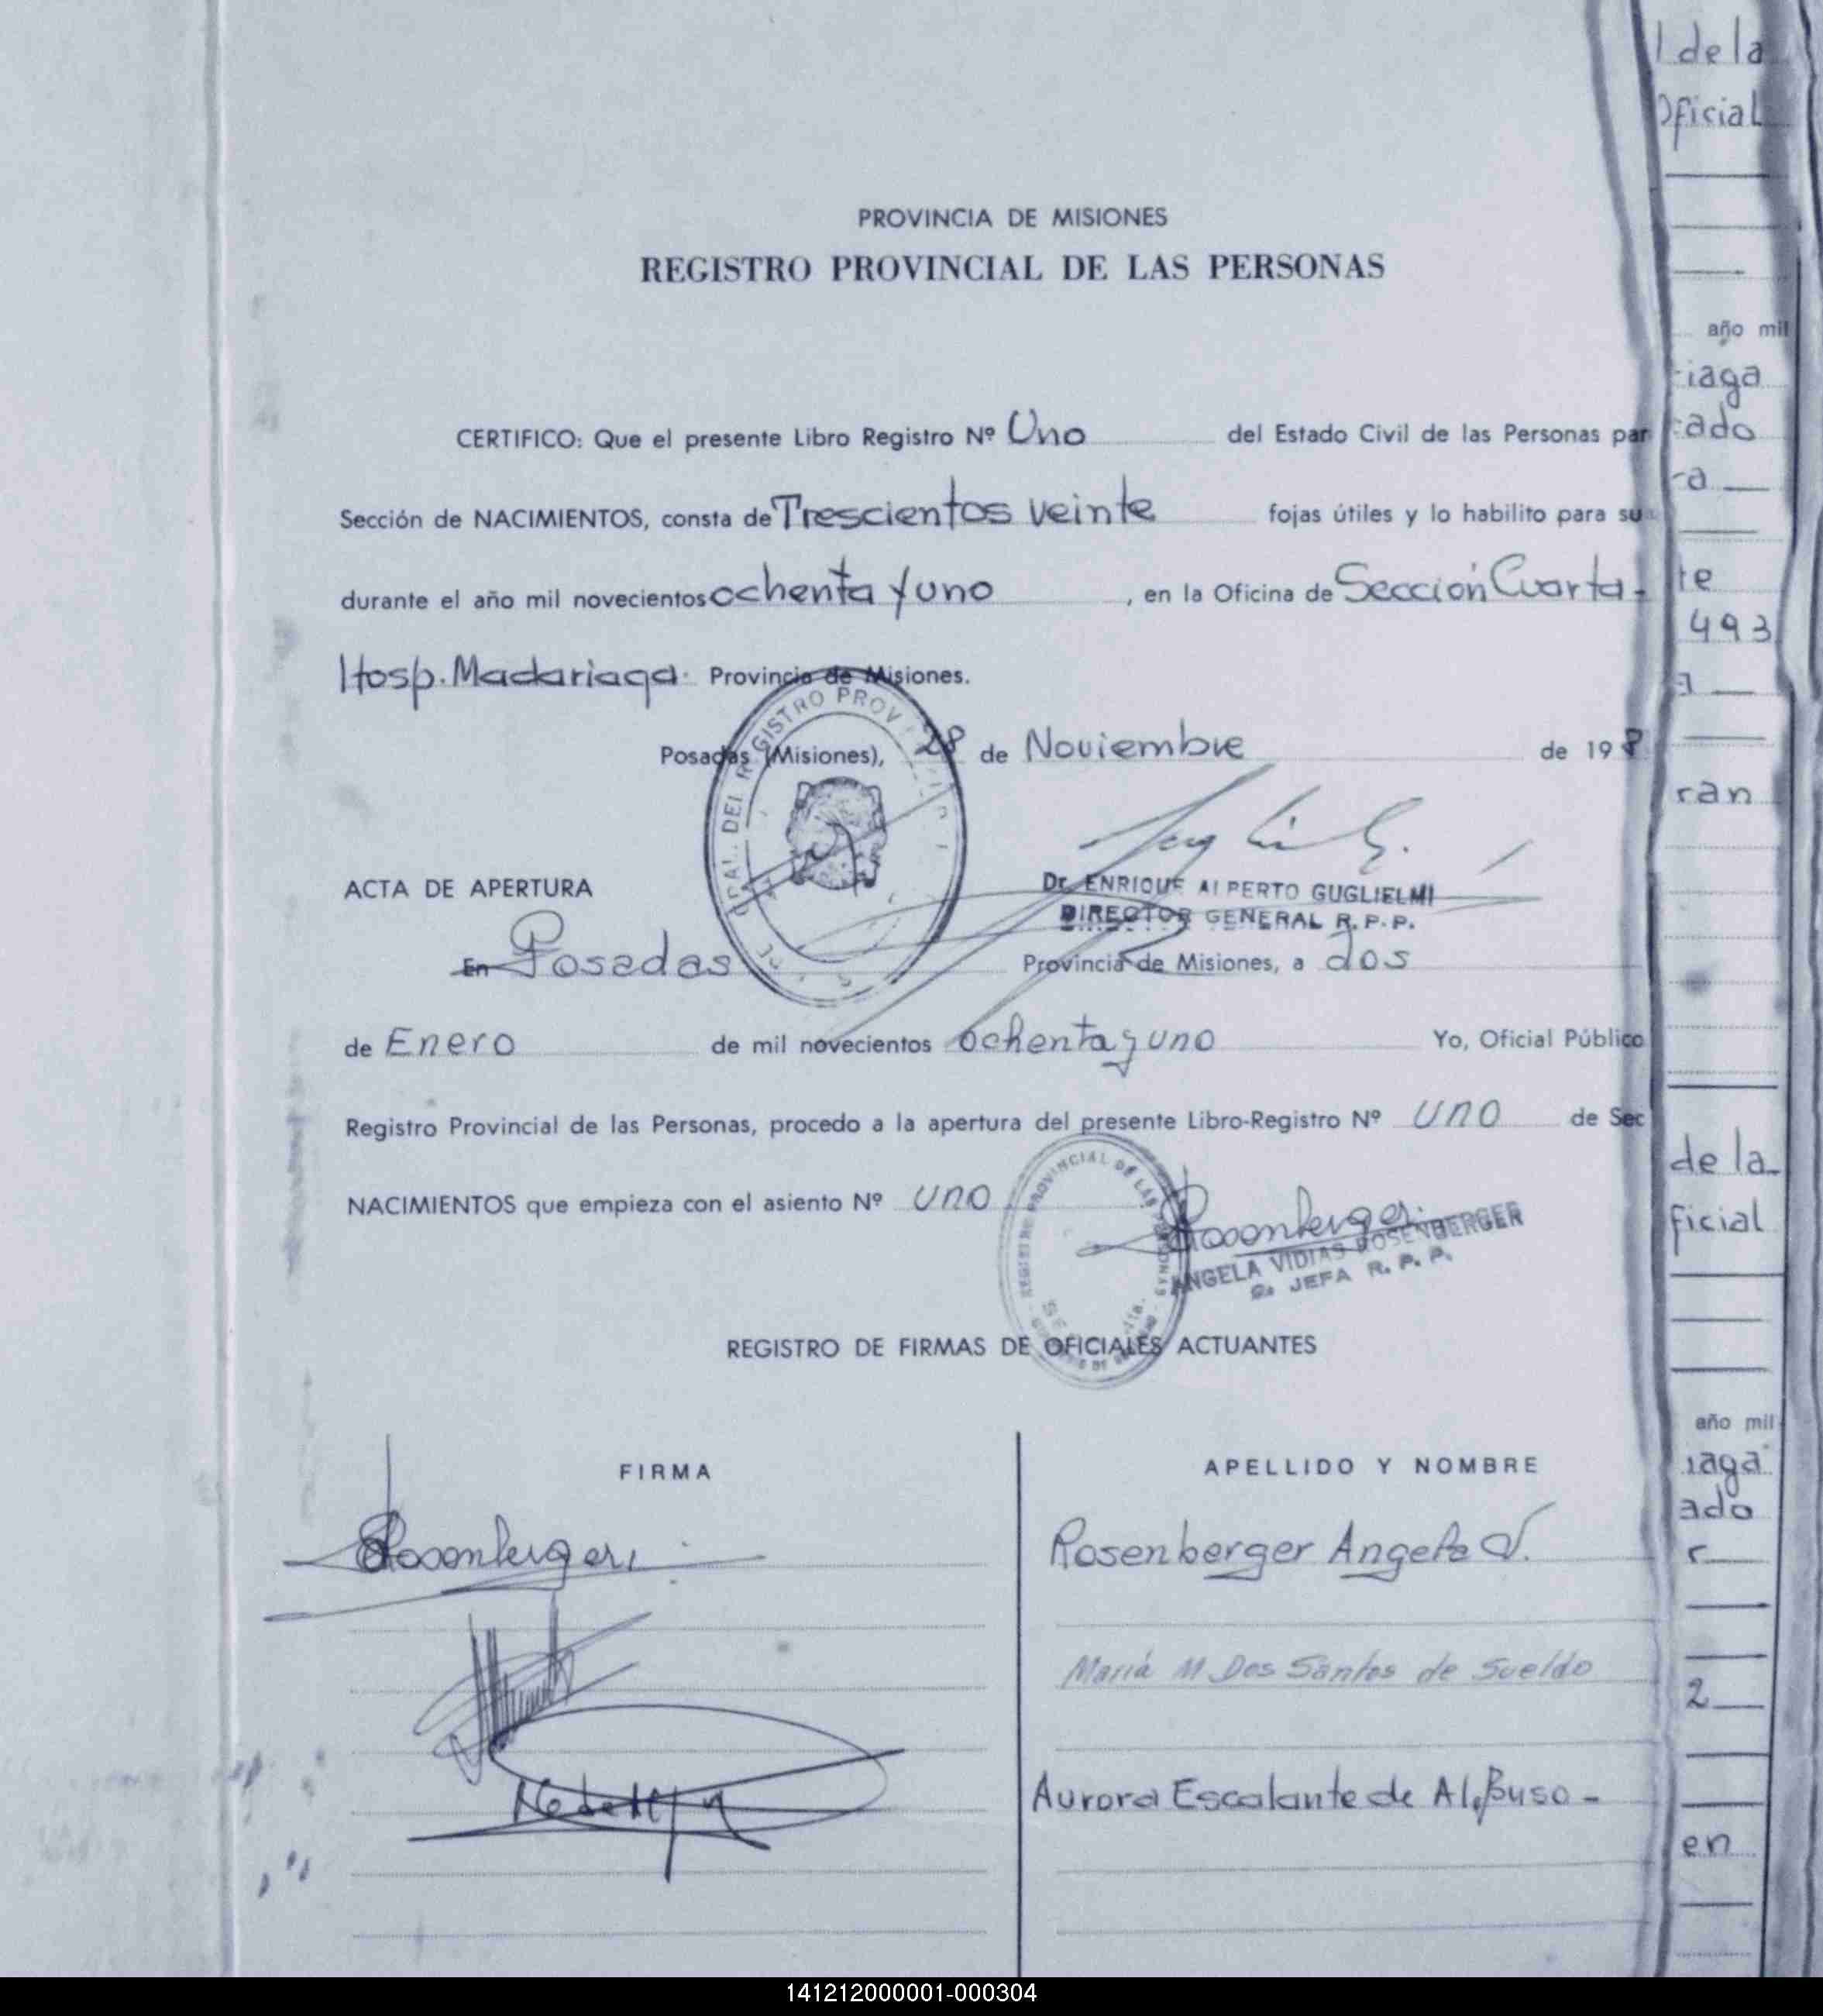 PROVINCIA DE MISIONES
REGISTRO PROVINCIAL DE LAS PERSONAS
CERTIFICO: Que el presente Libro Registro Nº Uno del Estado Civil de las Personas par
Sección de NACIMIENTOS, consta de Trescientos veinte fojas útiles y lo habilito para su
durante el año mil novecientos ochenta y uno, en la Oficina de Sección Cuarta-
Hosp. Madariaga. Provincia de Misiones.
Posadas (Misiones), 28 de Noviembre de 198
Dr. ENRIQUE ALBERTO GUGLIELMI
DIRECTOR GENERAL R.P.P.
ACTA DE APERTURA
En Posadas Provincia de Misiones, a dos
de Enero de mil novecientos ochenta y uno Yo, Oficial Público
Registro Provincial de las Personas, procedo a la apertura del presente Libro-Registro Nº uno de Sec
NACIMIENTOS que empieza con el asiento Nº uno
Rosenberger
ANGELA VIDIAS ROSENBERGER
JEFA R. P. P.
REGISTRO PROVINCIAL DE LAS PERSONAS
REGISTRO DE FIRMAS DE OFICIALES ACTUANTES
FIRMA APELLIDO Y NOMBRE
Rosenberger Rosenberger Angela V.
María M Dos Santos de Sueldo
Aurora Escalante de Al Buso -
l de la
Oficial
año mil
iaga
cado
ra
te
493
a
ran
de la
ficial
año mil
iaga
ado
r
2
en
141212000001-000304